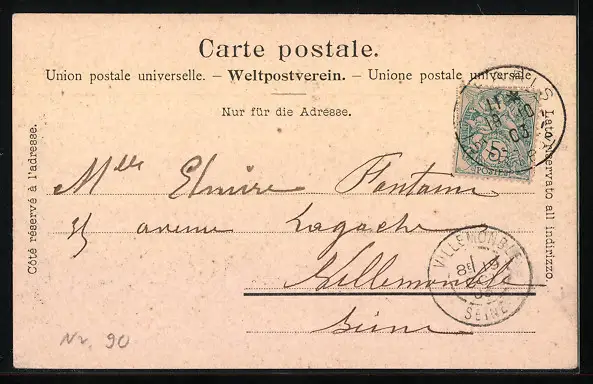 Carte postale.
Union postale universelle. – Weltpostverein. – Unione postale universale
Nur für die Adresse.
Côté réservé à l'adresse.
Lato riservato all indirizzo.
PARIS
POSTES
Mlle Elmire Fontaine
25 avenue Lagache
Villemomble
Seine
VILLEMOMBLE
SEINE
Nr. 90